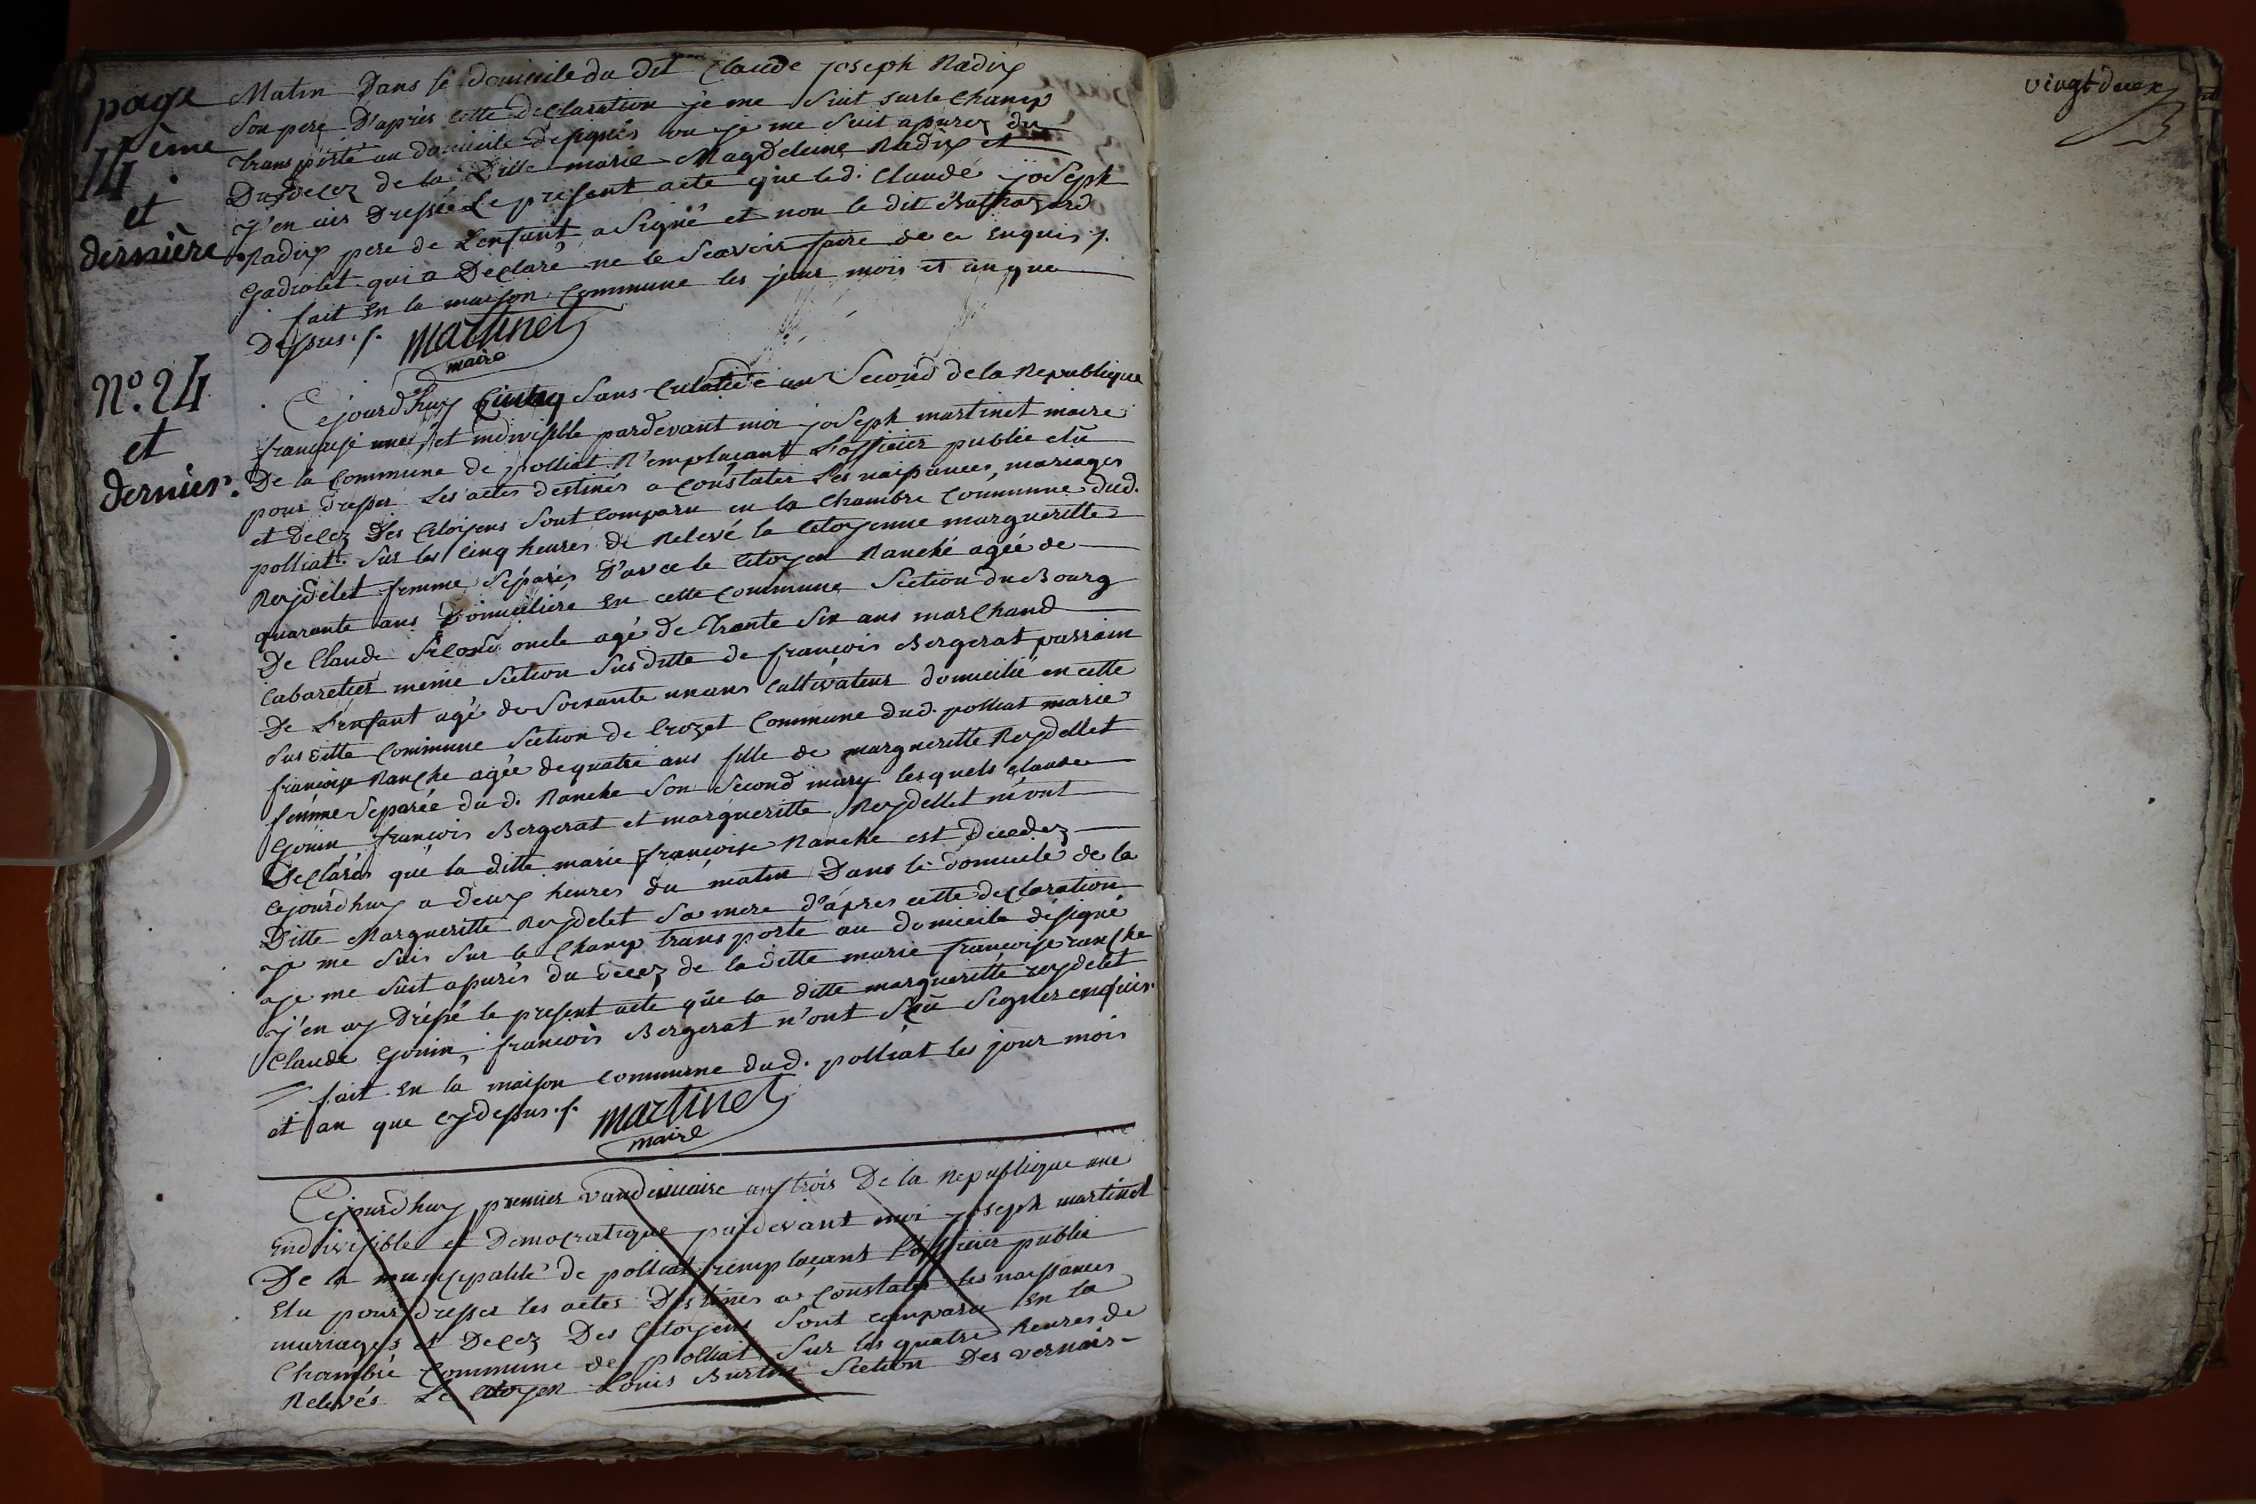 page
14ème
et
dernière.
Matin Dans le domicile du dit Claude joseph Radix
Son pere D'aprés cette declaration je me Suit sur le champ
transporté au domicile designés ou je me Suit apurez du
Du decez de la Ditte marie Magdeleine Radix et
j'en ais Dressé Le present acte que led. Claude joseph
Radix pere de L'enfant a Signé et non le dit Balthazard
Gadiolet qui a Declaré ne le Scavoir faire de ce enquis ƒ.
fait En la maison Commune les jour mois et an que
Dessus. ƒ. Martinet
maire
No. 24
et
dernier.
Cejourd'huy Cinq Sans-Culotide an Second de la Republique
françaisse une, et indivisible pardevant moi joseph martinet maire
De la Commune de polliat R'emplacant L'officier public élû
pour dresser Les actes destinés a Constater Les naissances, mariages
et Decez Des Citoyens Sont Comparu en la Chambre Commune dud.
polliat Sur les Cinq heures de Relevé la Citoyenne margueritte
Reydelet femme Séparés D'avec le Citoyen Ranché agéé de
quarante ans Domiciliére En cette Commune Section du Bourg
De Claude oncle agé de Trante Six ans marchand
Cabaretier meme Section Susditte de françois Bergerat parrain
De L'enfant agé de Soixante un ans Cultivateur domicilié en cette
Sus ditte Commune Section de Crozet Commune dud. polliat marie
françoise Ranche agée de quatre ans fille de margueritte Reydellet
femme Separée dud. Ranche Son Second mary lesquels Claude
Gonin françois Bergerat et margueritte Reydellet m'ont
Declarés que la ditte marie françoise Ranche est Décédez
cejourd'huy a deux heures du matin Dans le domicile de la
Ditte Margueritte Reydelet Sa mere d'aprés cette declaration
je me Suis Sur le Champ transporté au domicile désigné
je me Suit apurés du decez de laditte marie françoise ranche
j'en ay Dréssé le present acte que la ditte margueritte reydelet
Claude Gonin, françois Bergerat n'ont Scû Signer enquis.
fait En la maison Commune dud. polliat les jour mois
et an que cydessus. ƒ. Martinet
maire
Cejourd'huy premier vandemiaire an trois De la Republique une
indivisible et Democratique pardevant moi joseph martinet
De la municipalité de polliat remplaçant L'officier public
Elu pour dresser les actes Destinés a Constater les naissances
mariages et Decez Des Citoyens Sont comparu En la
Chambre Commune de polliat Sur les quatre heures de
Relevés Le Citoyen Louis Burtin Section Des vernais-
vingt deux